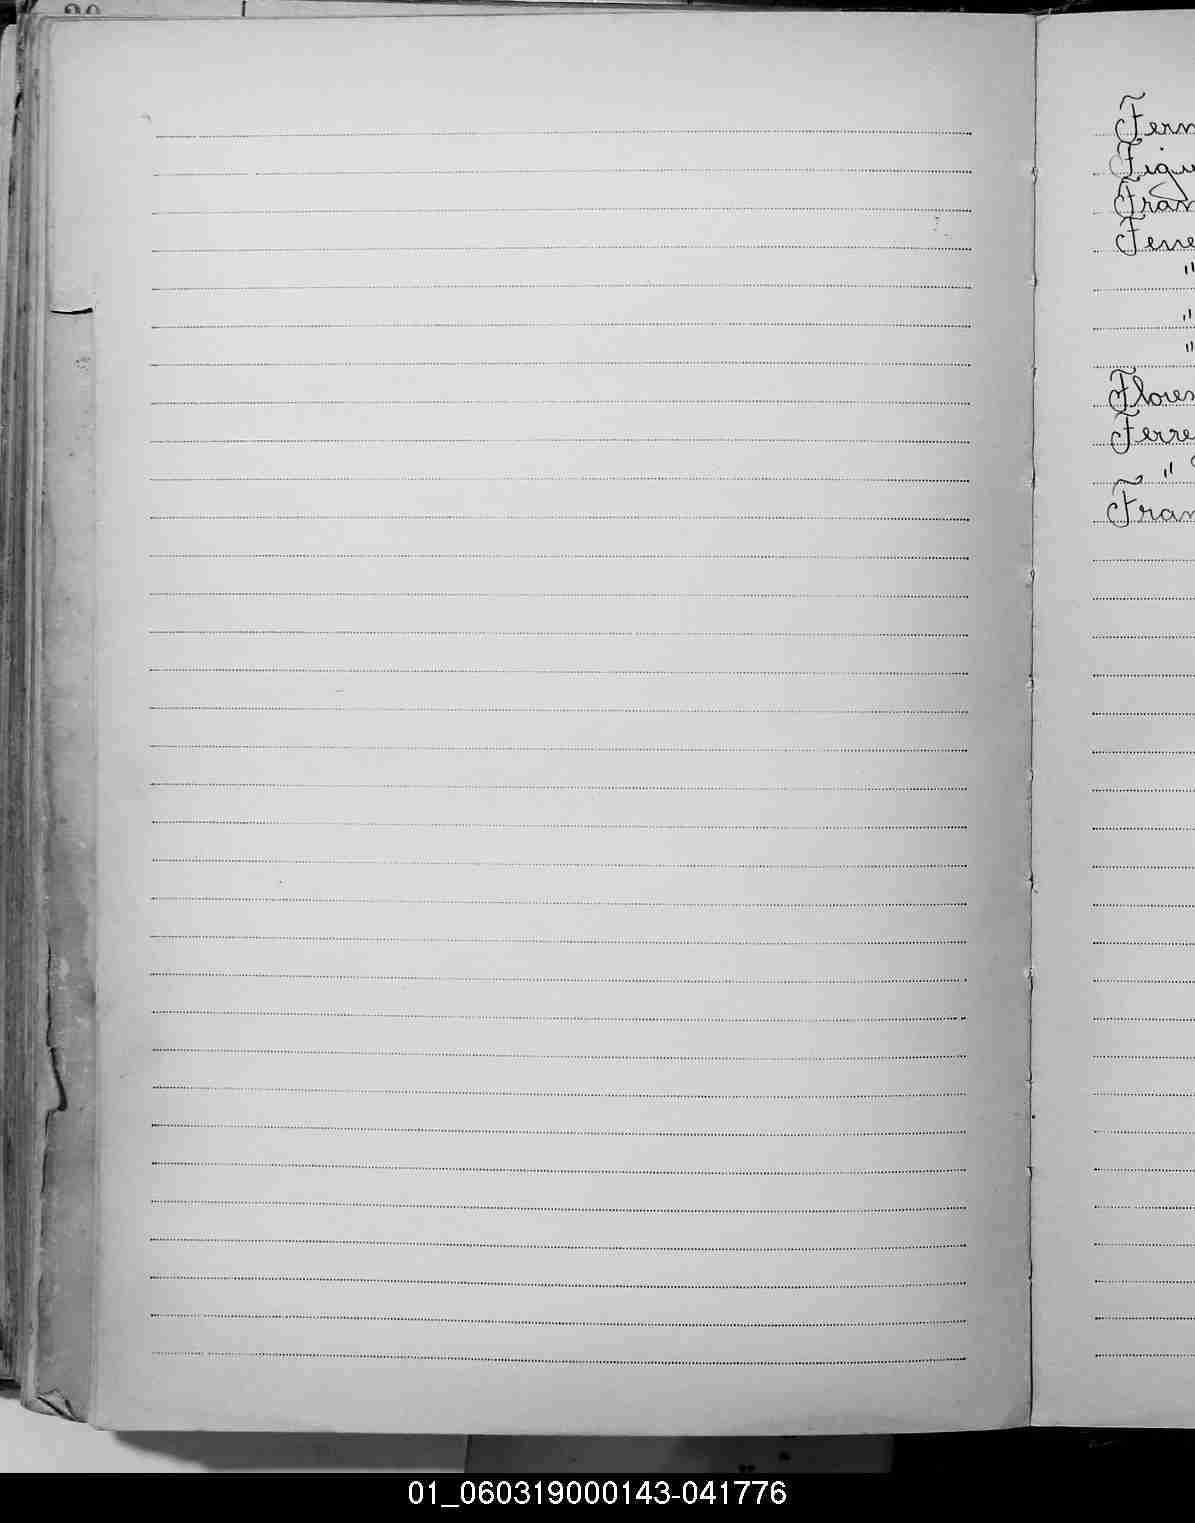 Fern
Figu
Fran
Ferre
"
"
"
Flores
Ferre
"
Fran
01_060319000143-041776